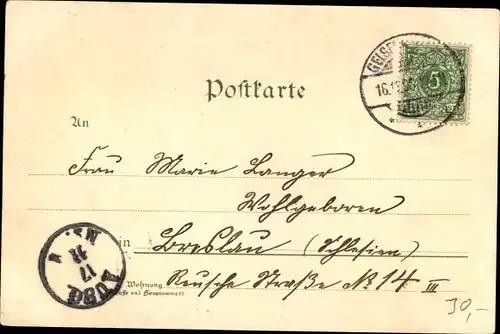 Postkarte
5
16.
An
Frau Marie Langer
Wohlgeboren
in Breslau (Schlesien)
Wohnung Reusche Straße No 14 III
(Straße und Hausnummer)
17
11
30,-